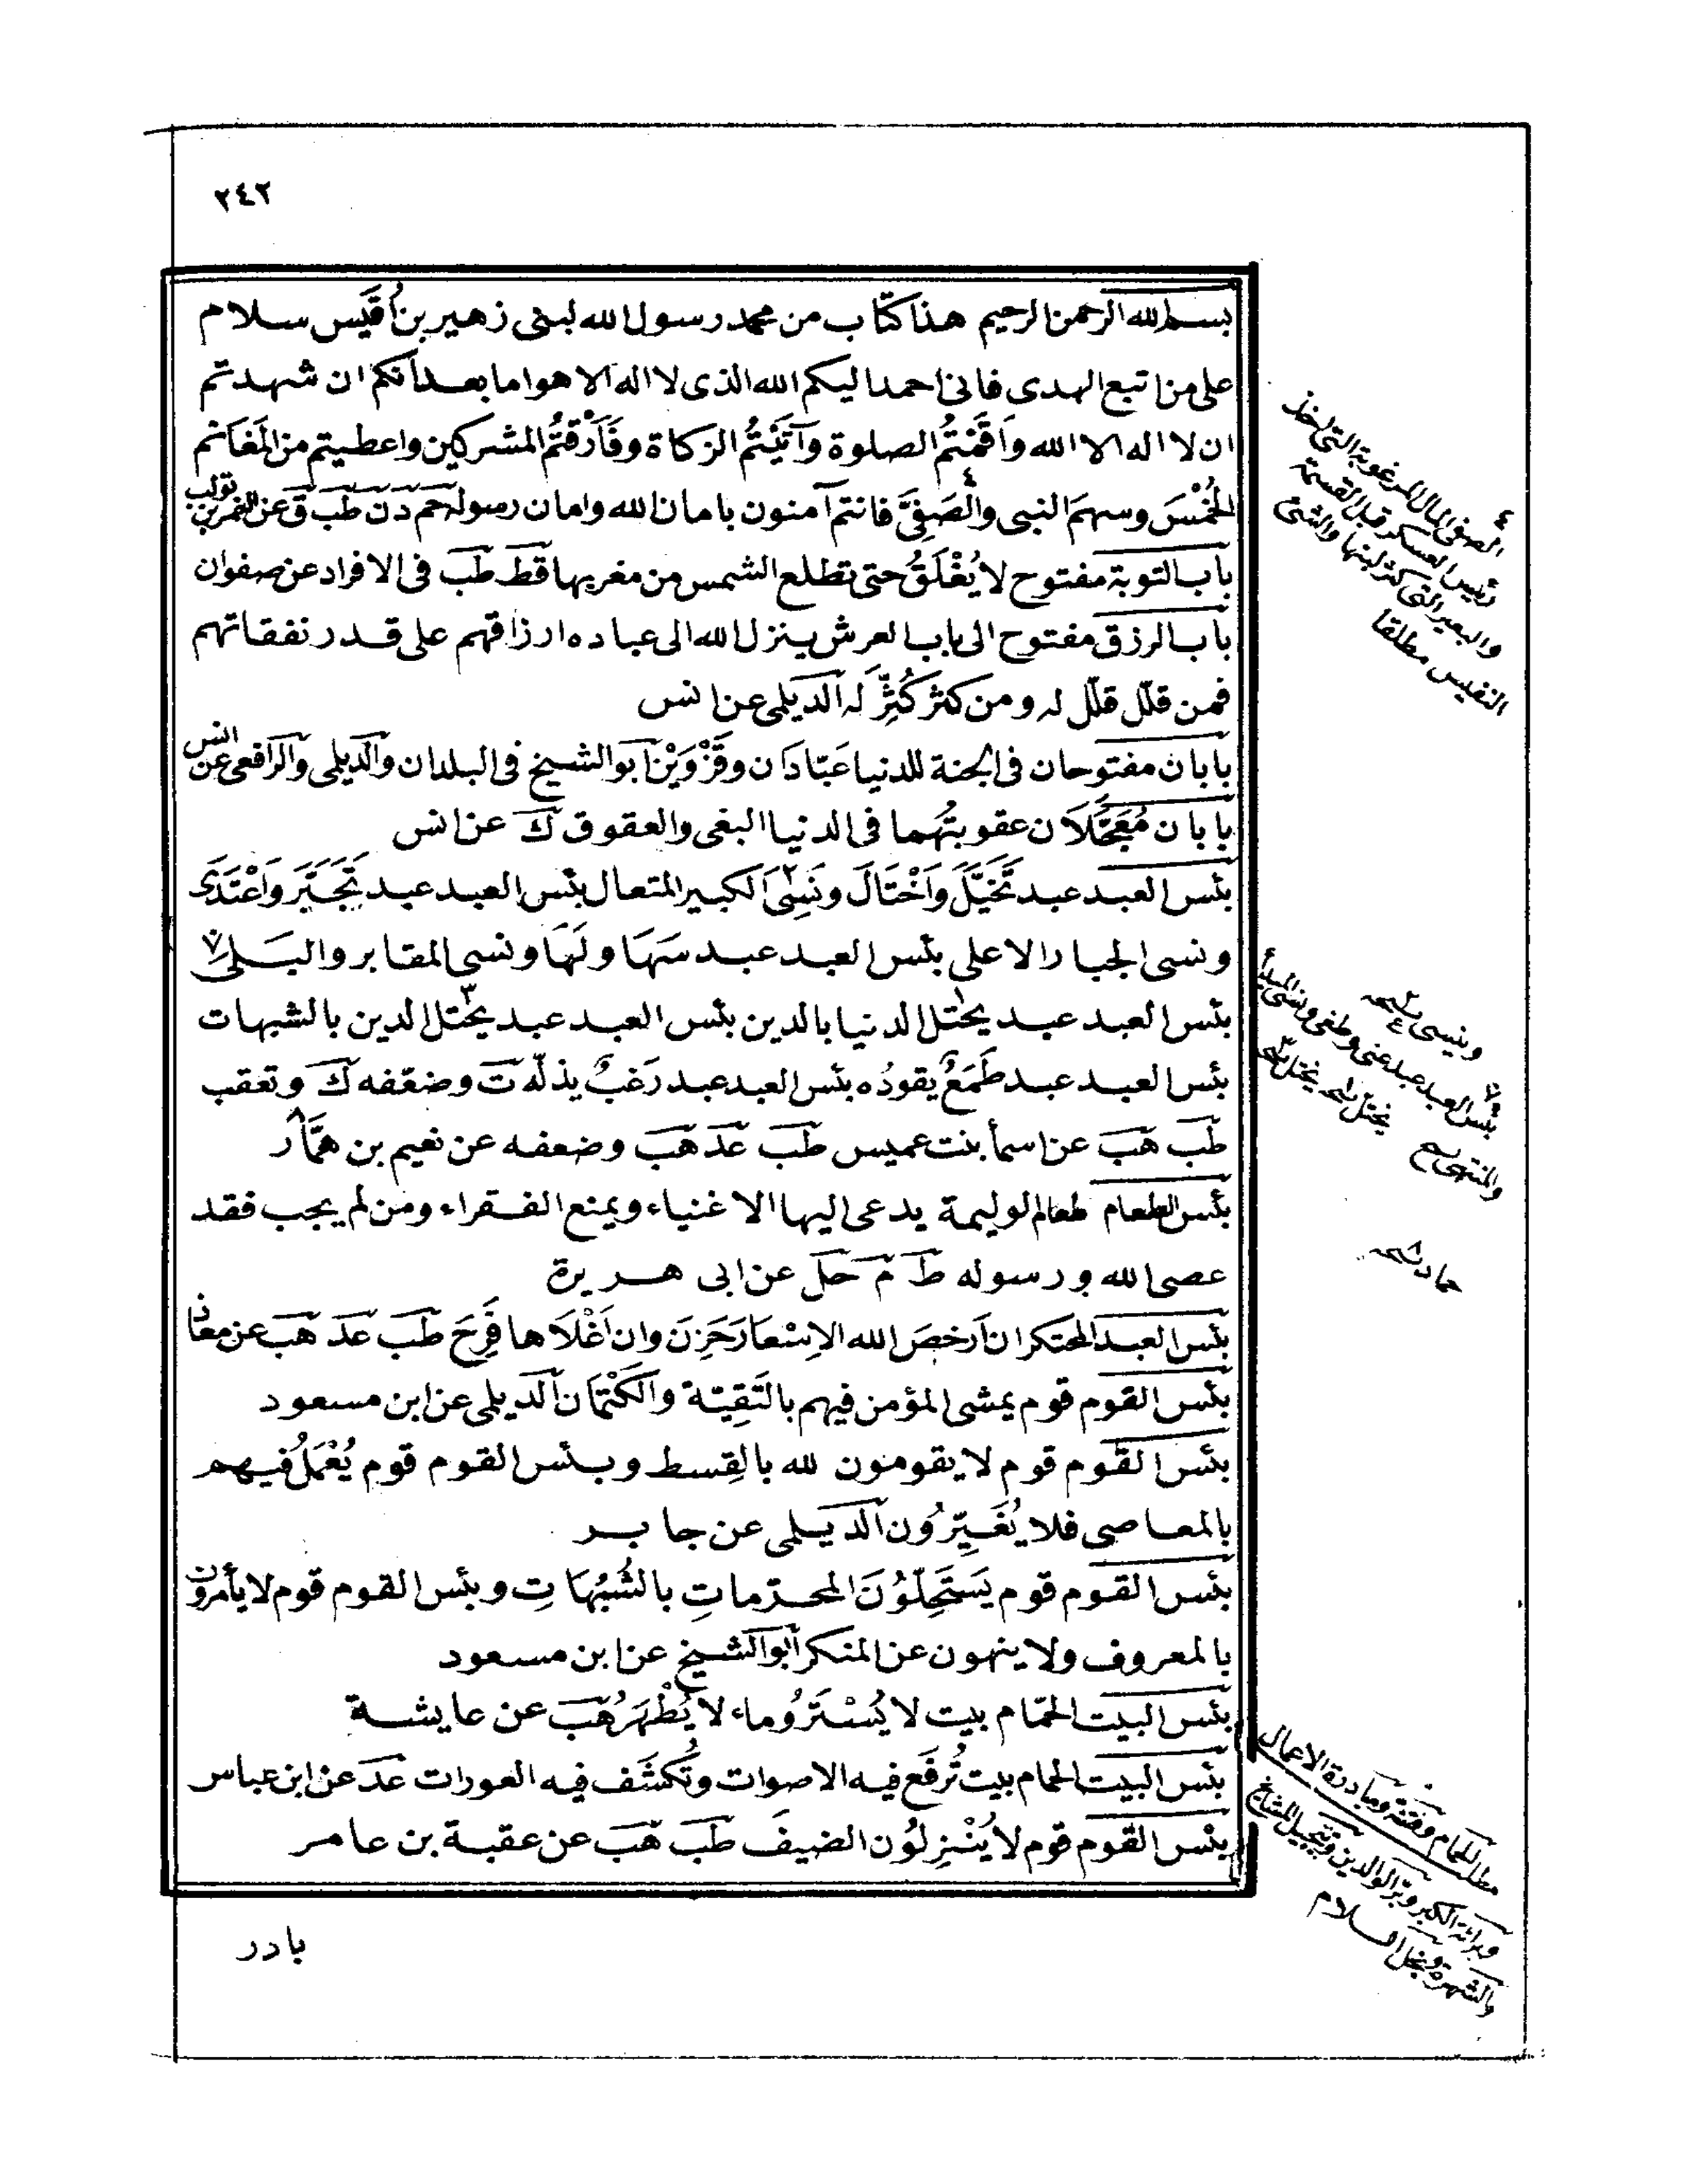 ٢٤٢
بسم الله الرحمن الرحيم هذا كتاب من محمد رسول الله لبنى زهير بن أقيس سلام
على من اتبع الهدى فانى احمد اليكم الله الذى لا اله الا هو اما بعد أنكم ان شهدتم
ان لا اله الا الله وأقمتم الصلوة وآتيتم الزكاة وفارقتم المشركين واعطيتم من المغانم
الخمس وسهم النبى والصفى٤ فانتم آمنون بامان الله وامان رسوله حم د ن طب ق عن النمر بن تولب
باب التوبة مفتوح لا يغلق حتى تطلع الشمس من مغربها قط طب فى الافراد عن صفوان
باب الرزق مفتوح الى باب العرش ينزل الله الى عباده ارزاقهم على قدر نفقاتهم
فمن قلّل قلّل له ومن كثر كُثِّر له الديلمى عن انس
بابان مفتوحان فى الجنة للدنيا عَبّادَان وقَزْوَيْن ابو الشيخ فى البلدان والديلمى والرافعى عن انس
بابان مُعَجَّلَان عقوبتُهما فى الدنيا البغى والعقوق ك عن انس
بئس العبد عبد تَخَيَّلَ وَاخْتَالَ ونَسِىَ٢ الكبير المتعال بئس العبد عبد تَجَبَّرَ وَاعْتَدَى
ونسى الجبار الاعلى بئس العبد عبد سَهَا ولَهَا ونسى المقابر والبلى٧
بئس العبد عبد يختل الدنيا بالدين بئس العبد عبد يختل٣ الدين بالشبهات
بئس العبد عبد طَمَعٌ يقودُه بئس العبد عبد رَغبٌ يذلّه ت وضعّفه ك وتعقب
طب هب عن اسمأ بنت عميس طب عد هب وضعفه عن نعيم بن همّار٨
بئس الطعام طعام الوليمة يدعى اليها الاغنياء ويمنع الفقراء ومن لم يجب فقد
عصى الله ورسوله ط م حل عن ابى هريرة
بئس العبد المحتكر ان أرخصَ الله الاسْعَارَ حَزِنَ وان أَغْلَاها فَرِحَ طب عد هب عن معاذ
بئس القوم قوم يمشى المؤمن فيهم بالتَقِيّة والكتمان الديلمى عن ابن مسعود
بئس القوم قوم لا يقومون لله بالقِسط وبئس القوم قوم يُعْمَلُ فيهم
بالمعاصى فلا يُغَيِّرُون الديلمى عن جابر
بئس القوم قوم يَستَحِلّوُنَ المحرّماتِ بالشُبُهَاتِ وبئس القوم قوم لا يأمرون
بالمعروف ولا ينهون عن المنكر أبو الشيخ عن ابن مسعود
بئس البيت الحمّام بيت لا يُسْتَرُ وماء لا يُطْهَرُ هب عن عايشة
بئس البيت الحمام بيت تُرفَع فيه الاصوات وتُكشَف فيه العورات عد عن ابن عباس
بئس القوم قوم لا يُنْزِلُون الضيف طب هب عن عقبة بن عامر
بادر
٤ الصفى المال المرغوبة التى اخذ
رئيس العسكر قبل القسمة
والبعير التى كثر لبنها والشئ
النفيس مطلقا
وينسى نسخه
بئس العبد عبد عتى وطغى ونسى المبدأ
والمنتهى
حاد نسخه
مطلب الحمام وفتنة ومبادرة الاعمال
وبرائة الكبر وبرّ الوالدين وتبجيل المشايخ
والشهرة وبخل السلام